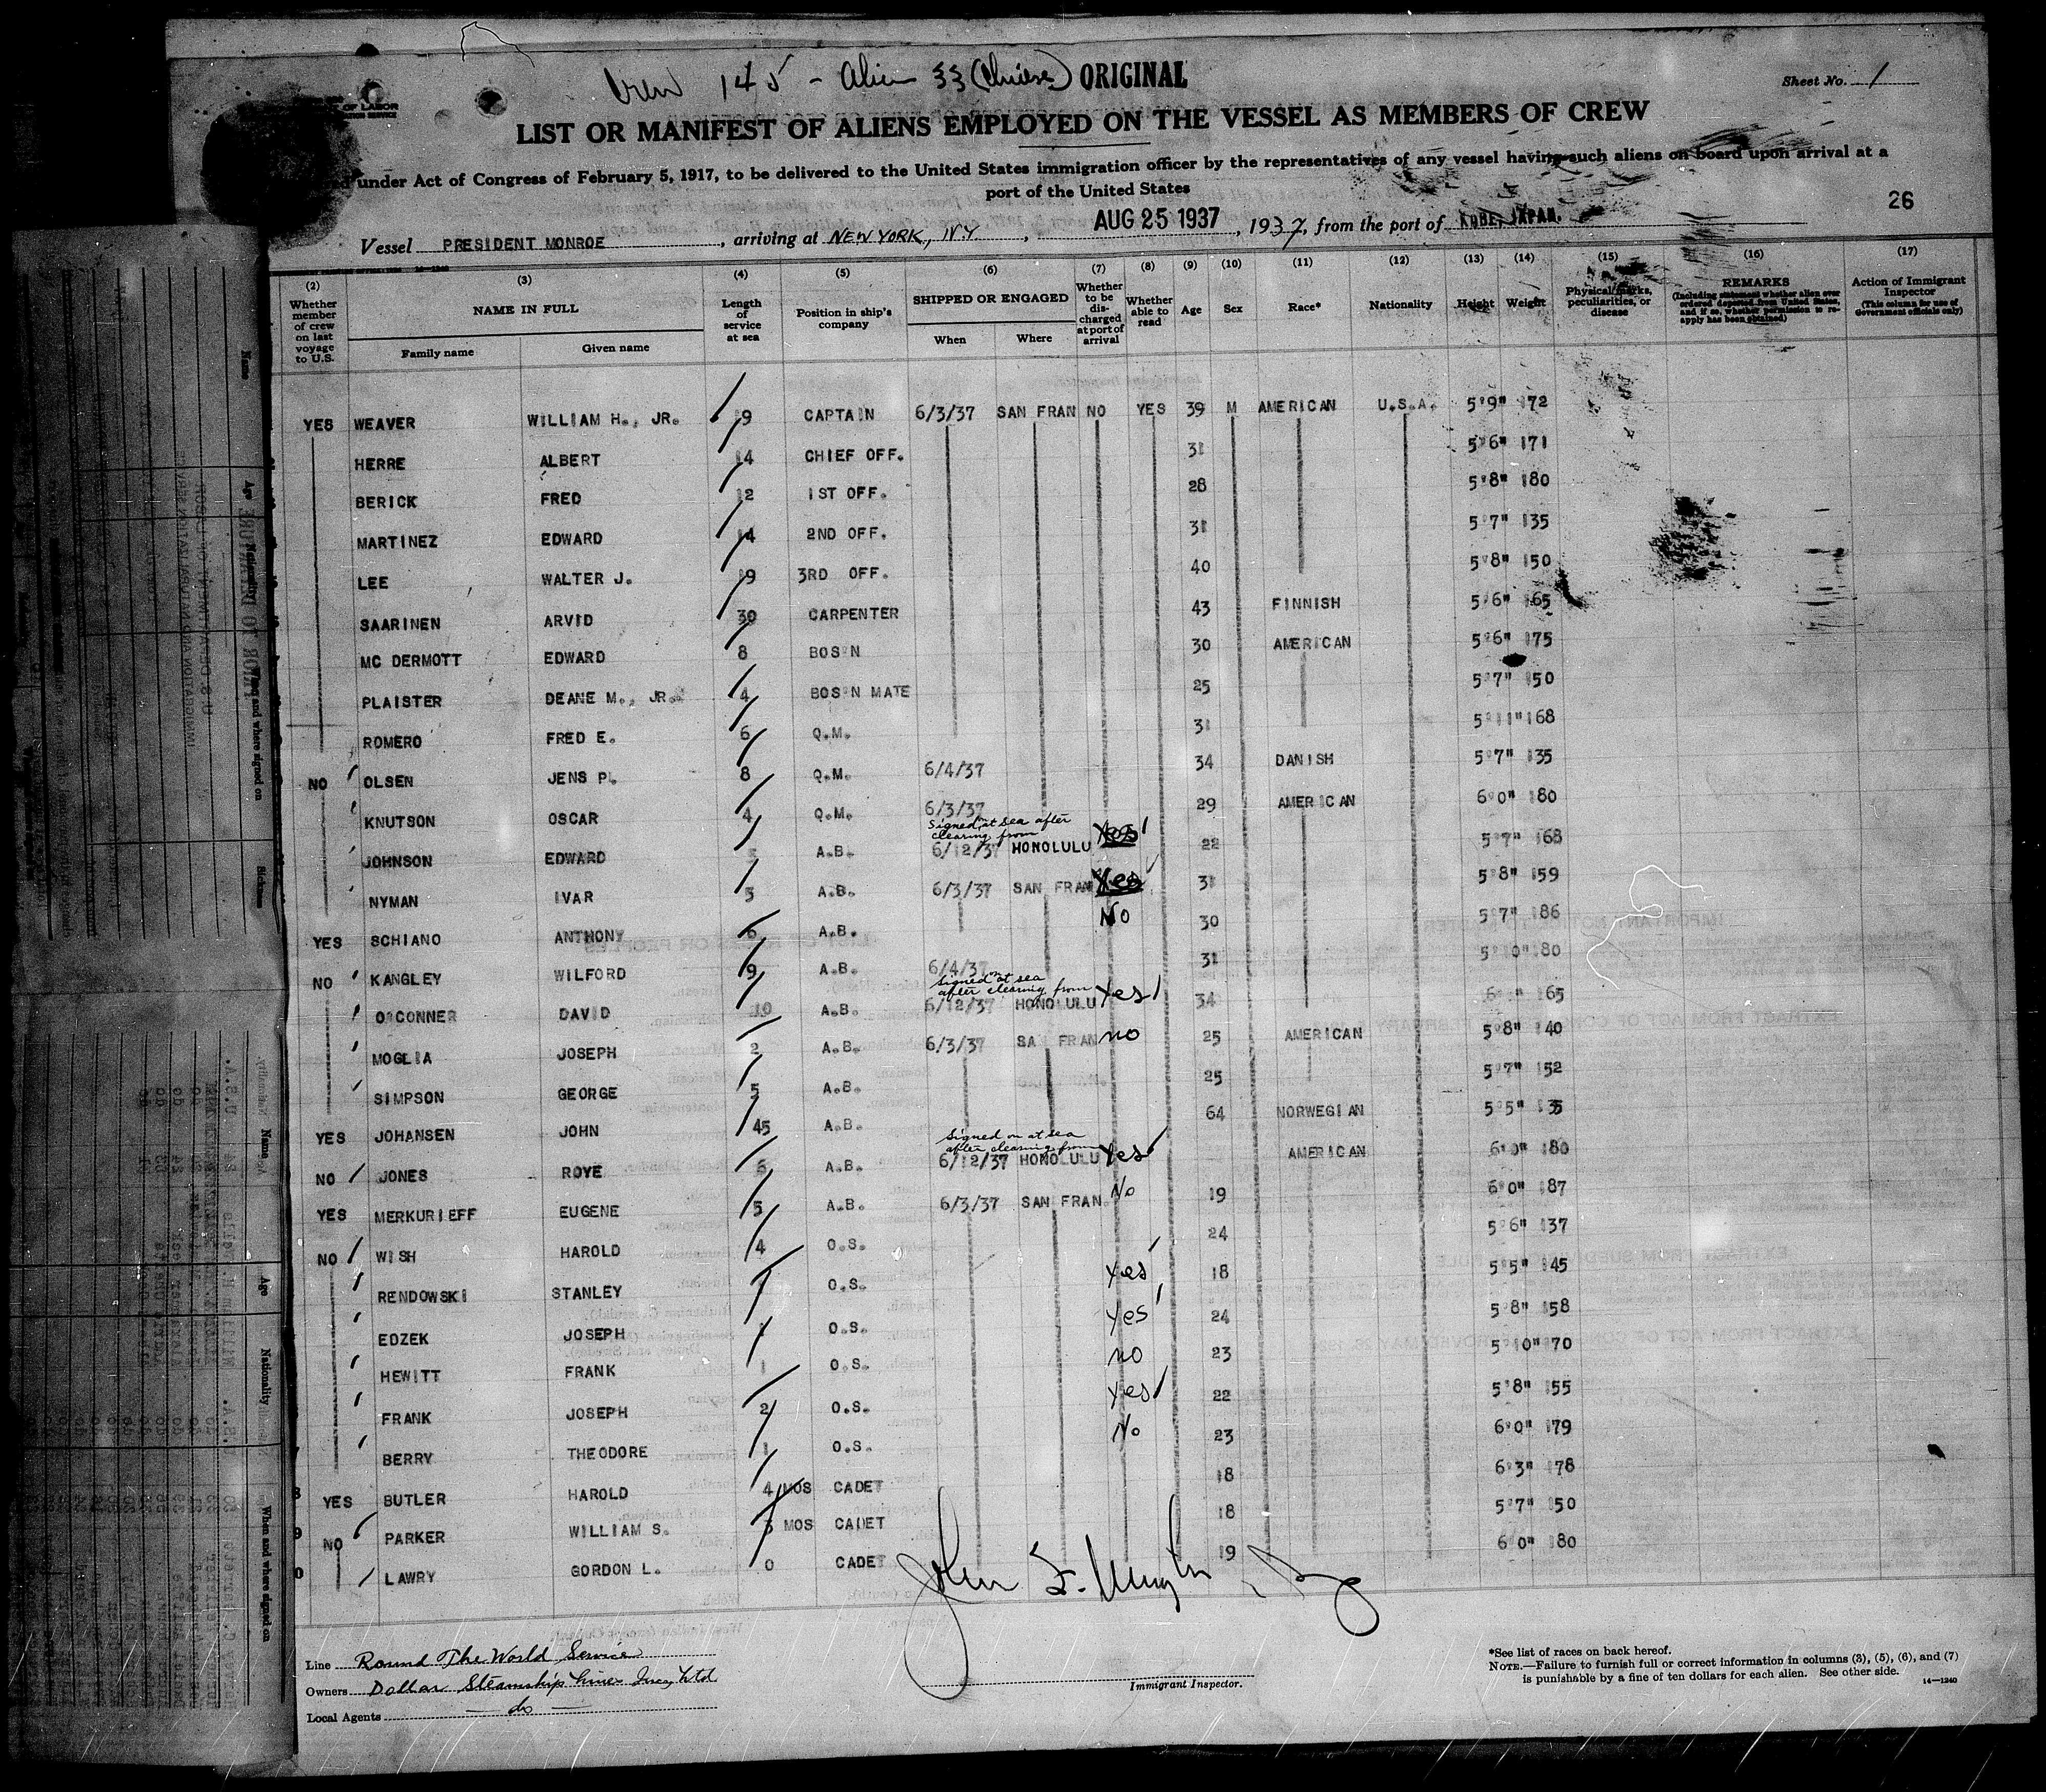 Crew 145 - Alien 33 (Chinese) ORIGINAL
Sheet No. 1
OF LABOR
LIST OR MANIFEST OF ALIENS EMPLOYED ON THE VESSEL AS MEMBERS OF CREW
under Act of Congress of February 5, 1917, to be delivered to the United States immigration officer by the representatives of any vessel having such aliens on board upon arrival at a
port of the United States
26
Vessel PRESIDENT MONROE, arriving at NEW YORK, N.Y., AUG 25 1937, 1937, from the port of KOBE, JAPAN.
(2) (3) (4) (5) (6) (7) (8) (9) (10) (11) (12) (13) (14) (15) (16) (17)
Whether member of crew on last voyage to U.S. NAME IN FULL Family name Given name Length of service at sea Position in ship's company SHIPPED OR ENGAGED When Where Whether to be discharged at port of arrival Whether able to read Age Sex Race* Nationality Height Weight Physical marks, peculiarities, or disease REMARKS (Including statement whether alien ever ordered deported from United States, and if so, whether permission to reapply has been obtained) Action of Immigrant Inspector (This column for use of Government officials only)
YES WEAVER WILLIAM H., JR. 19 CAPTAIN 6/3/37 SAN FRAN NO YES 39 M AMERICAN U.S.A. 5'9" 172
HERRE ALBERT 14 CHIEF OFF. 31 5'6" 171
BERICK FRED 12 1ST OFF. 28 5'8" 180
MARTINEZ EDWARD 14 2ND OFF. 31 5'7" 135
LEE WALTER J. 19 3RD OFF. 40 5'8" 150
SAARINEN ARVID 30 CARPENTER 43 FINNISH 5'6" 165
MC DERMOTT EDWARD 8 BOS'N 30 AMERICAN 5'6" 175
PLAISTER DEANE M., JR. 4 BOS'N MATE 25 5'7" 150
ROMERO FRED E. 6 Q.M. 31 5'11" 168
NO OLSEN JENS P. 8 Q.M. 6/4/37 34 DANISH 5'7" 135
KNUTSON OSCAR 4 Q.M. 6/3/37 29 AMERICAN 6'0" 180
Signed on at sea after clearing from
JOHNSON EDWARD A.B. 6/12/37 HONOLULU Yes 22 5'7" 168
NYMAN IVAR 5 A.B. 6/3/37 SAN FRAN Yes 31 5'8" 159
YES SCHIANO ANTHONY 6 A.B. No 30 5'7" 186
NO KANGLEY WILFORD 9 A.B. 6/4/37 31 5'10" 180
Signed on at sea after clearing from
O'CONNER DAVID 10 A.B. 6/12/37 HONOLULU Yes 34 165
MOGLIA JOSEPH 2 A.B. 6/3/37 SA FRAN no 25 AMERICAN 5'8" 140
SIMPSON GEORGE 5 A.B. 25 5'7" 152
YES JOHANSEN JOHN 45 A.B. 64 NORWEGIAN 5'5" 135
Signed on at sea after clearing from
NO JONES ROYE 6 A.B. 6/12/37 HONOLULU Yes AMERICAN 6'0" 180
YES MERKURIEFF EUGENE 5 A.B. 6/3/37 SAN FRAN No 19 6'0" 187
NO WISH HAROLD 4 O.S. 24 5'6" 137
RENDOWSKI STANLEY O.S. Yes 18 5'5" 145
EDZEK JOSEPH 1 O.S. Yes 24 5'8" 158
HEWITT FRANK 1 O.S. no 23 5'10" 170
FRANK JOSEPH 2 O.S. Yes 22 5'8" 155
BERRY THEODORE 1 O.S. No 23 6'0" 179
YES BUTLER HAROLD 4 MOS CADET 18 6'3" 178
NO PARKER WILLIAM S. 3 MOS CADET 18 5'7" 150
LAWRY GORDON L. 0 CADET 19 6'0" 180
Line Round The World Service
Owners Dollar Steamship Lines Inc., Ltd
Local Agents — do —
Immigrant Inspector.
*See list of races on back hereof.
NOTE.—Failure to furnish full or correct information in columns (3), (5), (6), and (7)
is punishable by a fine of ten dollars for each alien. See other side.
14—1240